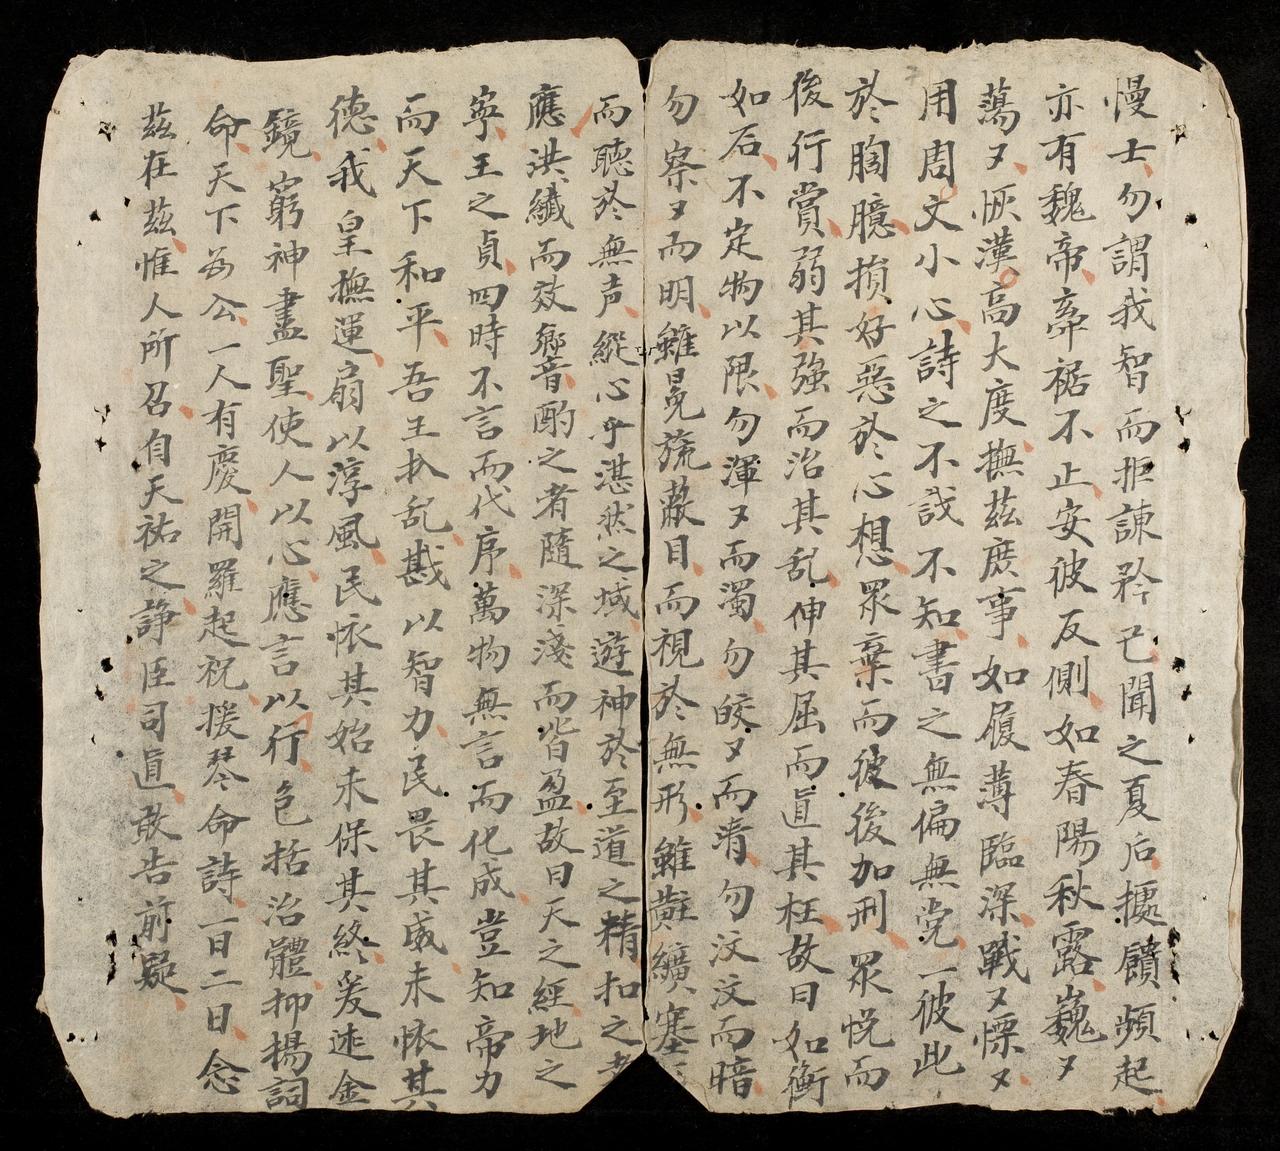 慢士勿謂我智而拒諫矜己聞之夏后據饋頻起
亦有魏帝牽裾不止安彼反側如春陽秋露巍〻
蕩〻恢漢高大度撫茲庶事如履薄臨深戰〻慄〻
用周文小心詩之不識不知書之無偏無党一彼此
於胸臆損好惡於心想眾棄而後加刑眾悅而
後行賞弱其強而治其乱伸其屈而直其枉故曰如衡
如石不定物以限勿渾〻而濁勿皎〻而清勿汶汶而暗
勿察〻而明雖冕旒蔽目而視於無形雖黈纊塞
而聽於無声縱心乎湛然之域遊神於至道之精扣之者
應洪纖而效響酌之者隨深淺而皆盈故曰天之經地之
寧王之貞四時不言而代序萬物無言而化成豈知帝力
而天下和平吾王撥乱戡以智力民畏其威未懷其
德我皇撫運扇以淳風民懷其始未保其終爰述金
鏡窮神盡聖使人以心應言以行包括治體抑揚詞
命天下為公一人有慶開羅起祝援琴命詩一日二日念
茲在茲惟人所召自天祐之諍臣司直敢告前疑